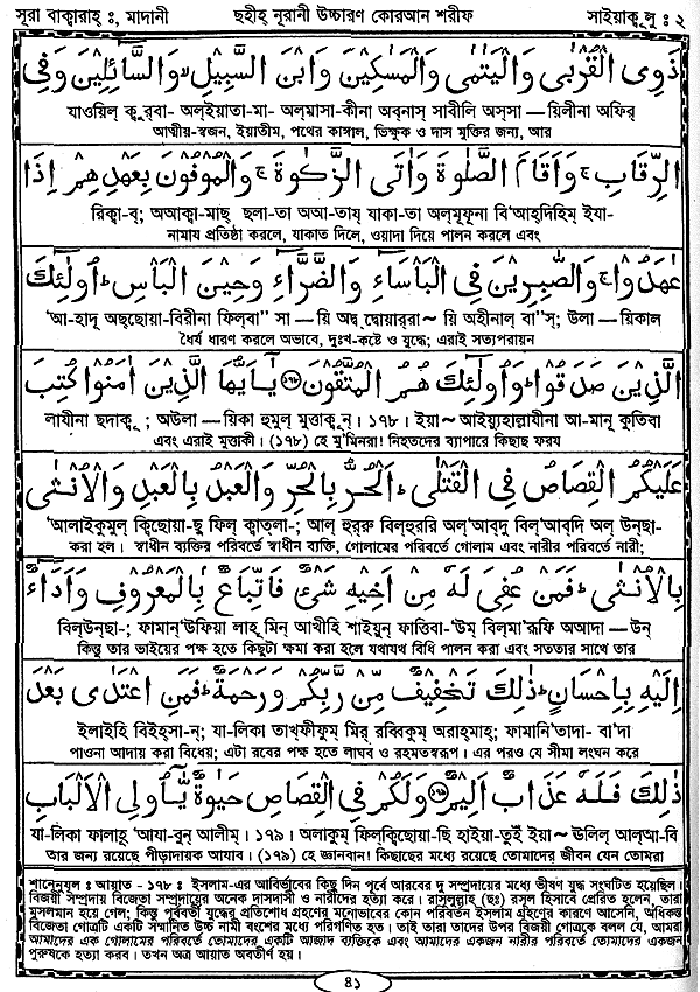 সূরা বাক্বারাহ্ ঃ, মাদানী ছহীহ্ নূরানী উচ্চারণ কোরআন শরীফ সাইয়াক্বূলূ ঃ ২
ذَوِى الْقُرْبٰى وَالْيَتٰمٰى وَالْمَسٰكِيْنَ وَابْنَ السَّبِيْلِ وَالسَّآئِلِيْنَ وَفِى
যাওয়িল্ ক্বূর্‌বা- অল্‌ইয়াতা-মা- অল্‌মাসা-কীনা অব্‌নাস্ সাবীলি অস্‌সা — য়িলীনা অফির্
আত্মীয়-স্বজন, ইয়াতীম, পথের কাঙ্গাল, ভিক্ষুক ও দাস মুক্তির জন্য, আর
الرِّقَابِ ۚ وَاَقَامَ الصَّلٰوةَ وَاٰتَى الزَّكٰوةَ ۚ وَالْمُوْفُوْنَ بِعَهْدِهِمْ اِذَا
রিক্বা-ব্; অআক্বা-মাছ্ ছলা-তা অআ-তায্ যাকা-তা অল্‌মূফূনা বি'আহ্‌দিহিম্ ইযা-
নামায প্রতিষ্ঠা করলে, যাকাত দিলে, ওয়াদা দিয়ে পালন করলে এবং
عٰهَدُوْا ۚ وَالصّٰبِرِيْنَ فِى الْبَاْسَآءِ وَالضَّرَّآءِ وَحِيْنَ الْبَاْسِ ؕ اُولٰٓئِكَ
'আ-হাদূ অছ্‌ছোয়া-বিরীনা ফিল্‌বা'' সা — য়ি অদ্ব্ দ্বোয়ার্‌রা— য়ি অহীনাল্ বা''স্; উলা — য়িকাল
ধৈর্য ধারণ করলে অভাবে, দুঃখ-কষ্টে ও যুদ্ধে; এরাই সত্যপরায়ন
الَّذِيْنَ صَدَقُوْا ؕ وَاُولٰٓئِكَ هُمُ الْمُتَّقُوْنَ ۝۱۷۸ يٰٓاَيُّهَا الَّذِيْنَ اٰمَنُوْا كُتِبَ
লাযীনা ছদাক্বূ ; অউলা — য়িকা হুমুল্ মুত্তাকূন্। ১৭৮। ইয়া~ আইয়্যুহাল্লাযীনা আ-মানূ কুতিবা
এবং এরাই মুত্তাকী। (১৭৮) হে মু'মিনরা! নিহতদের ব্যাপারে কিছাছ ফরয
عَلَيْكُمُ الْقِصَاصُ فِى الْقَتْلٰى ؕ اَلْحُرُّ بِالْحُرِّ وَالْعَبْدُ بِالْعَبْدِ وَالْاُنْثٰى
'আলাইকুমুল্ ক্বিছোয়া-ছু ফিল্ ক্বাত্‌লা-; আল্ হুর্‌রু বিল্‌হুর্‌রি অল্'আব্‌দু বিল্'আব্‌দি অল্ উন্‌ছা-
করা হল। স্বাধীন ব্যক্তির পরিবর্তে স্বাধীন ব্যক্তি, গোলামের পরিবর্তে গোলাম এবং নারীর পরিবর্তে নারী;
بِالْاُنْثٰى ؕ فَمَنْ عُفِىَ لَهٗ مِنْ اَخِيْهِ شَىْءٌ فَاتِّبَاعٌۢ بِالْمَعْرُوْفِ وَاَدَآءٌ
বিল্‌উন্‌ছা-; ফামান্'উফিয়া লাহূ মিন্ আখীহি শাইয়ুন্ ফাত্তিবা-'উম্ বিল্‌মা'রূফি অআদা — উন্
কিন্তু তার ভাইয়ের পক্ষ হতে কিছুটা ক্ষমা করা হলে যথাযথ বিধি পালন করা এবং সততার সাথে তার
اِلَيْهِ بِاِحْسَانٍ ؕ ذٰلِكَ تَخْفِيْفٌ مِّنْ رَّبِّكُمْ وَرَحْمَةٌ ؕ فَمَنِ اعْتَدٰى بَعْدَ
ইলাইহি বিইহ্‌সা-ন্; যা-লিকা তাখ্‌ফীফুম্ মির্ রব্বিকুম্ অরাহ্‌মাহ্; ফামানি'তাদা- বা'দা
পাওনা আদায় করা বিধেয়; এটা রবের পক্ষ হতে লাঘব ও রহমতস্বরূপ। এর পরও যে সীমা লংঘন করে
ذٰلِكَ فَلَهٗ عَذَابٌ اَلِيْمٌ ۝۱۷۹ وَلَكُمْ فِى الْقِصَاصِ حَيٰوةٌ يّٰٓاُولِى الْاَلْبَابِ
যা-লিকা ফালাহূ 'আযা-বুন্ আলীম্। ১৭৯। অলাকুম্ ফিল্‌ক্বিছোয়া-ছি হাইয়া-তুইঁ ইয়া~ উলিল্ আল্‌আ-বি
তার জন্য রয়েছে পীড়াদারক আযাব। (১৭৯) হে জ্ঞানবান! কিছাছের মধ্যে রয়েছে তোমাদের জীবন যেন তোমরা
শানেনুযুল ঃ আয়াত - ১৭৮ ঃ ইসলাম-এর আবির্ভাবের কিছু দিন পূর্বে আরবের দু সম্প্রদায়ের মধ্যে ভীষণ যুদ্ধ সংঘটিত হয়েছিল।
বিজয়ী সম্প্রদায় বিজেতা সম্প্রদায়ের অনেক দাসদাসী ও নারীদের হত্যা করে। রাসূলুল্লাহ্ (ছঃ) রসূল হিসাবে প্রেরিত হলেন, তারা
মুসলমান হয়ে গেল; কিন্তু পূর্ববর্তী যুদ্ধের প্রতিশোধ গ্রহণের মনোভাবের কোন পরিবর্তন ইসলাম গ্রহণের কারণে আসেনি, অধিকন্তু
বিজেতা গোত্রটি একটি সম্মানিত উচ্চ নামী বংশের মধ্যে পরিগণিত হত। তাই তারা তাদের উপর বিজয়ী গোত্রকে বলল যে, আমরা
আমাদের এক গোলামের পরিবর্তে তোমাদের একটি আজাদ ব্যক্তিকে এবং আমাদের একজন নারীর পরিবর্তে তোমাদের একজন
পুরুষকে হত্যা করব। তখন অত্র আয়াত অবতীর্ণ হয়।
৪১